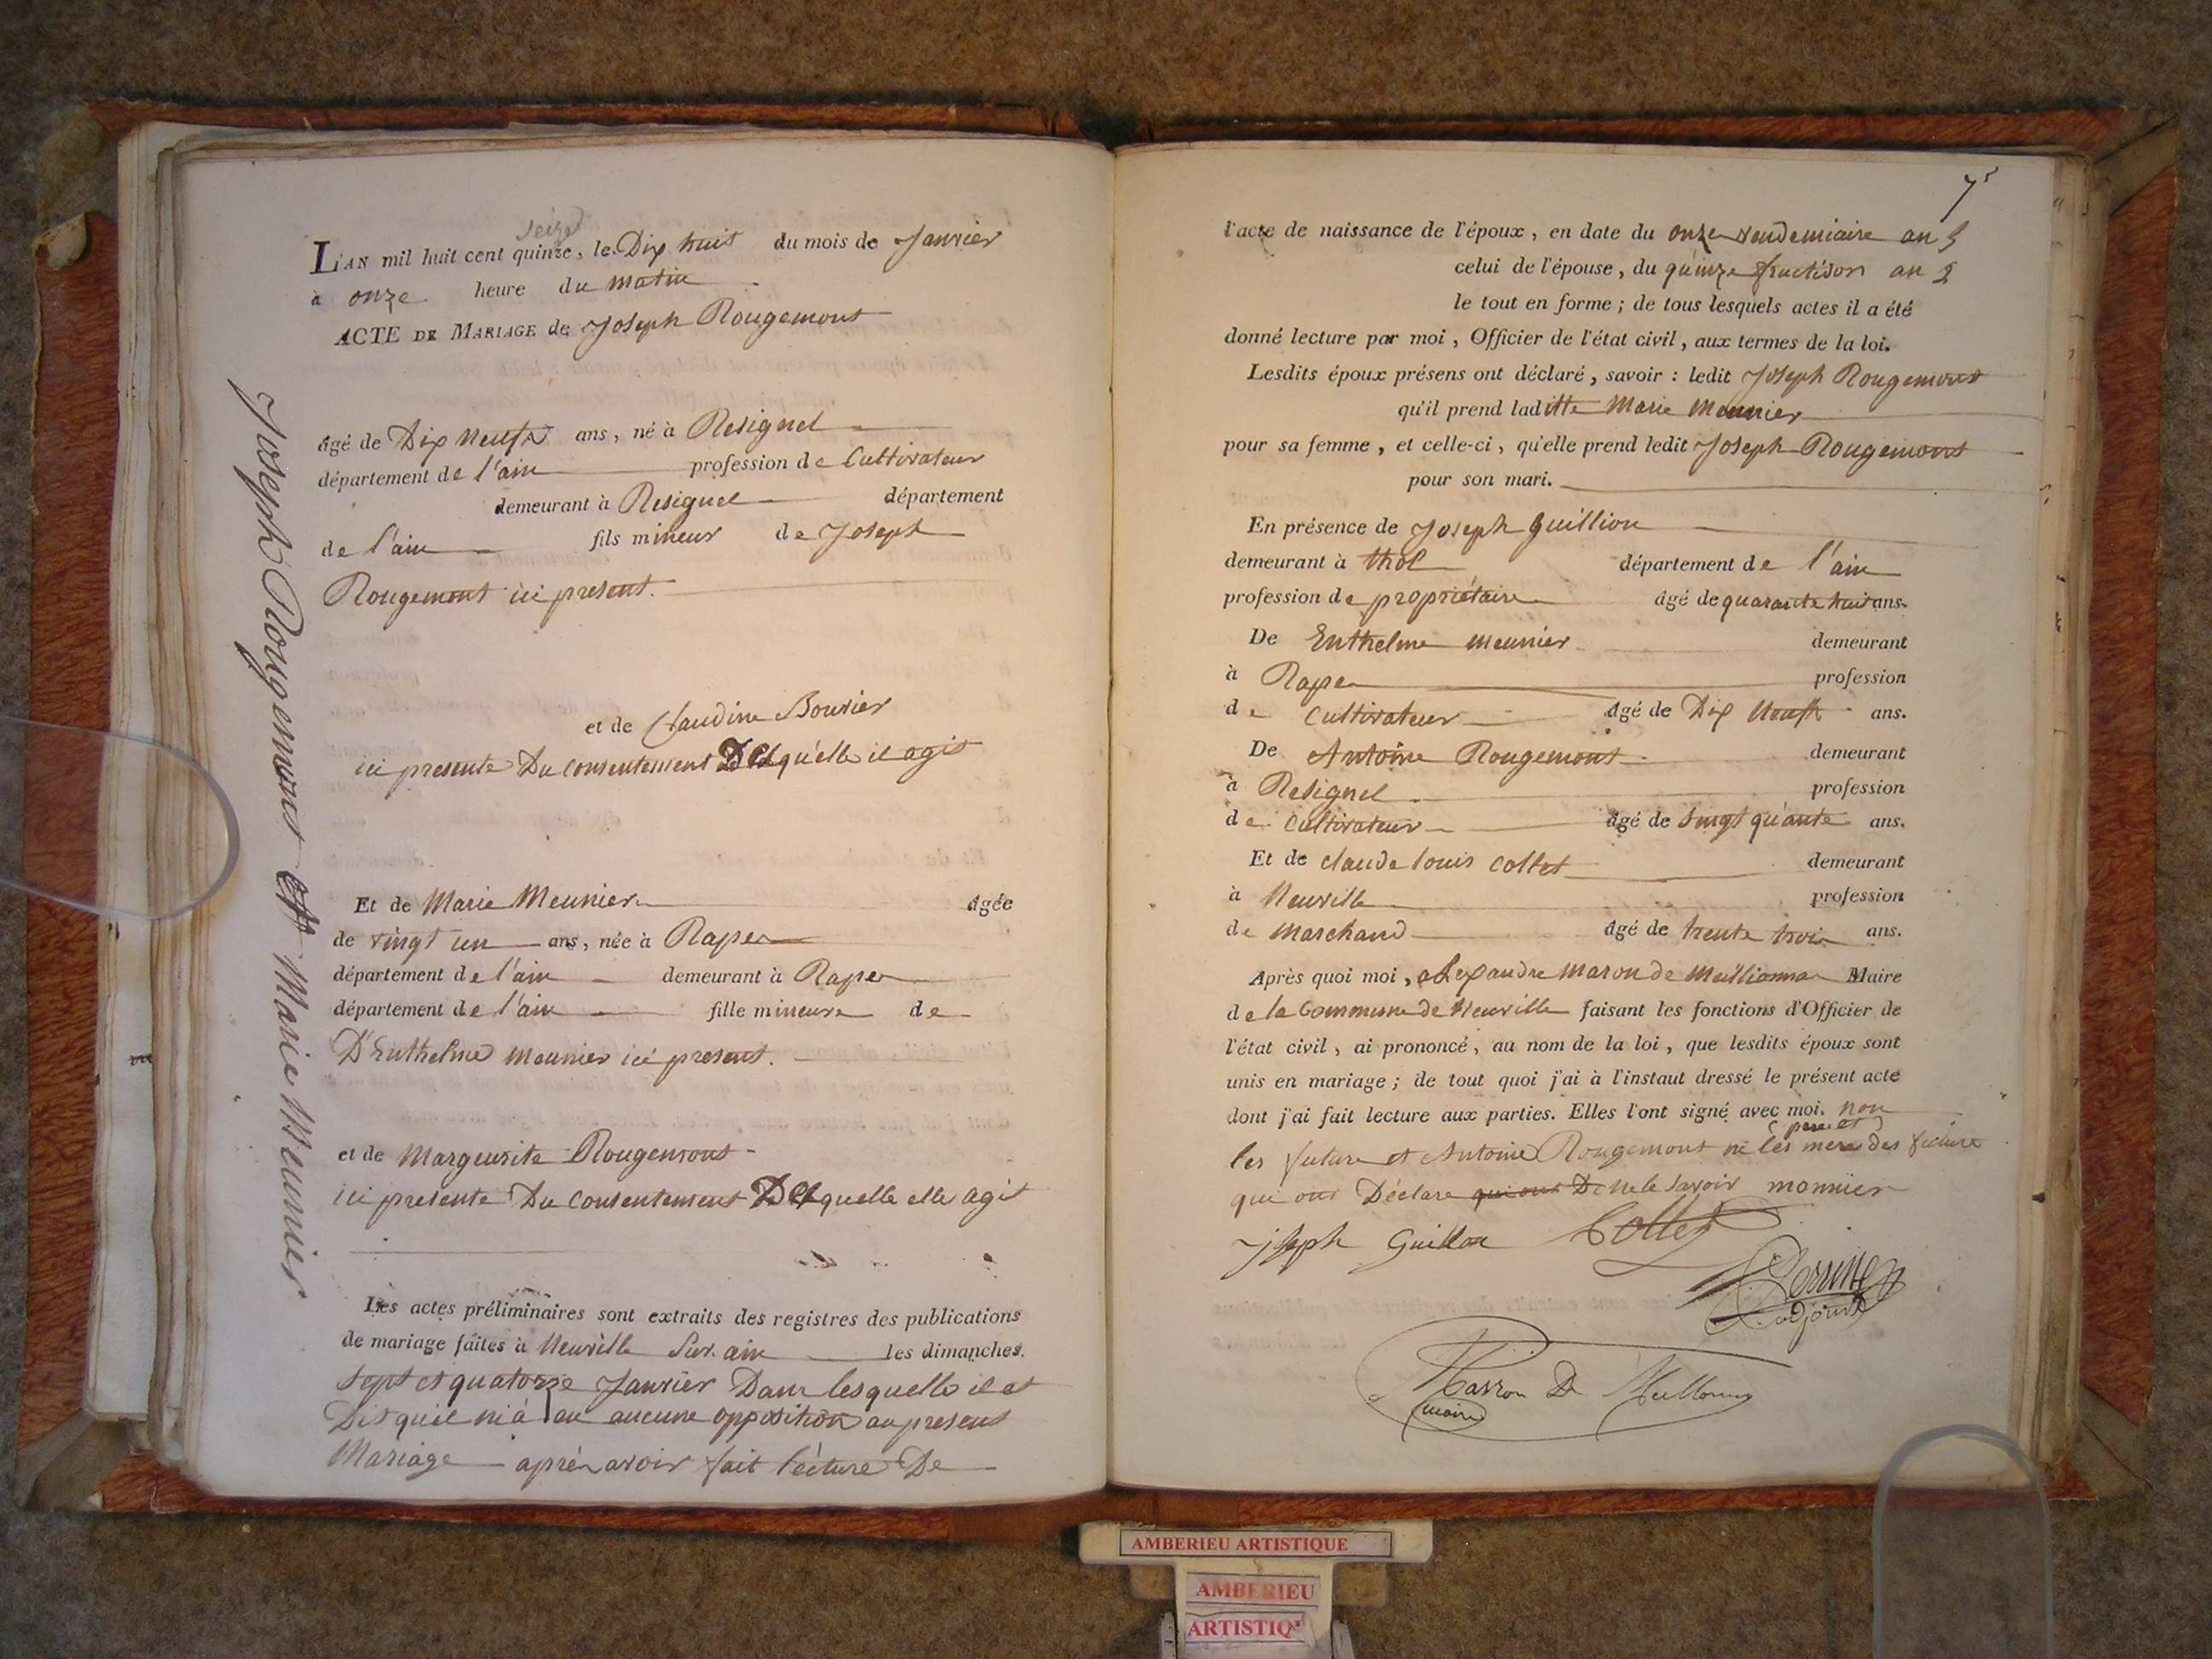 Joseph Rougemont et Marie Meunier
seize
L'AN mil huit cent quinze, le Dix huit du mois de Janvier
à onze heure du matin
ACTE DE MARIAGE de Joseph Rougemont
âgé de Dix neuf ans, né à Resignel
département de l'ain profession de Cultivateur
demeurant à Resignel département
de l'ain fils mineur de Joseph
Rougemont ici present.
et de Claudine Bouvier
ici presente Du consentement Desquelle il agit
Et de Marie Meunier âgée
de vingt un ans, née à Rape
département de l'ain demeurant à Rape
département de l'ain fille mineure de
D'Enthelme meunier ici present.
et de Margeurite Rougemont
ici presente Du consentement Desquelle elle agit
Les actes préliminaires sont extraits des registres des publications
de mariage faites à Neuville Sur ain les dimanches
Sept et quatorze Janvier Dans lesquelle il et
Dit qu'il ni à eu aucune opposition au present
Mariage après avoir fait lecture De
7
l'acte de naissance de l'époux, en date du onze vendemiaire an 5
celui de l'épouse, du quinze fructidor an 2
le tout en forme; de tous lesquels actes il a été
donné lecture par moi, Officier de l'état civil, aux termes de la loi.
Lesdits époux présens ont déclaré, savoir: ledit Joseph Rougemont
qu'il prend laditte Marie Meunier
pour sa femme, et celle-ci, qu'elle prend ledit Joseph Rougemont
pour son mari.
En présence de Joseph Guillion
demeurant à thol département de l'ain
profession de propriétaire âgé de quarante huit ans.
De Enthelme meunier demeurant
à Rape profession
de Cultivateur âgé de Dix neuf ans.
De Antoine Rougemont demeurant
à Resignel profession
de Cultivateur âgé de vingt quante ans.
Et de claude louis collet demeurant
à Neuville profession
de Marchand âgé de trente trois ans.
Après quoi moi, alexandre maron de Meillionna Maire
de la Commune de Neuville faisant les fonctions d'Officier de
l'état civil, ai prononcé, au nom de la loi, que lesdits époux sont
unis en mariage; de tout quoi j'ai à l'instaut dressé le présent acte
dont j'ai fait lecture aux parties. Elles l'ont signé avec moi. non
pere et
les future et Antoine Rougemont ni les mere des future
qui ont Déclare qui ont De ne le savoir monnier
joseph Guillon Collet
adjoint
Marron De Meillonna
maire
AMBERIEU ARTISTIQUE
AMBERIEU
ARTISTIQ